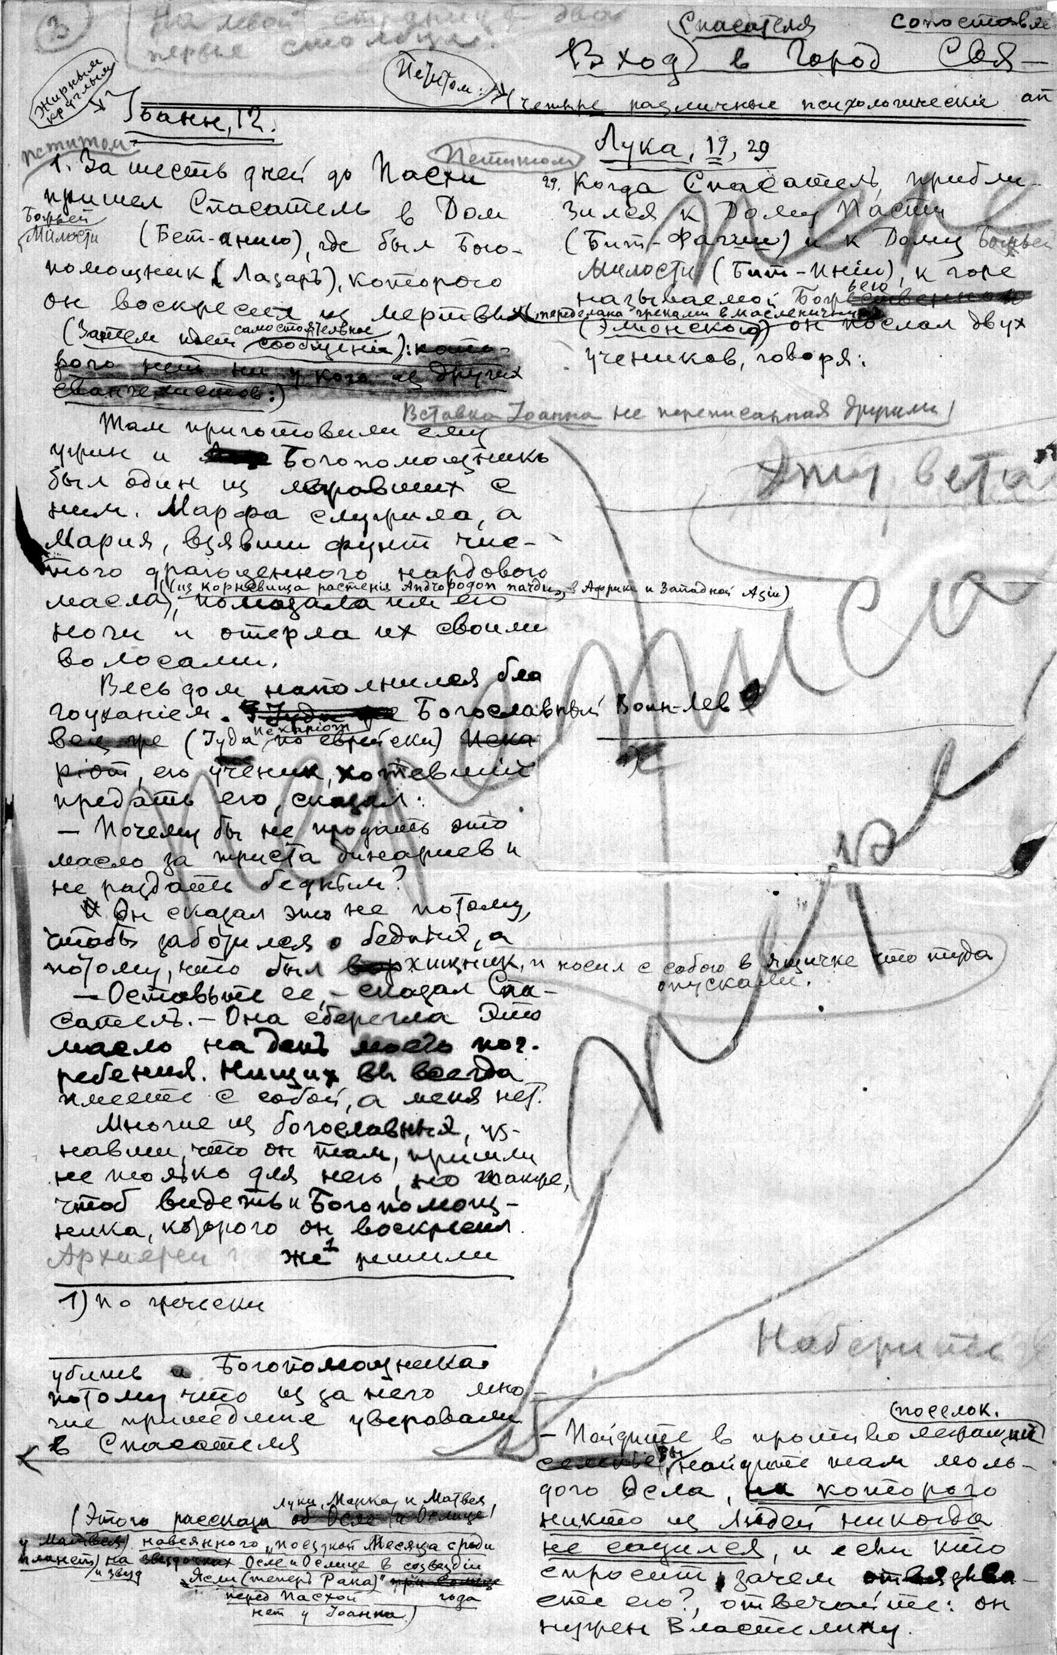 3
На левой странице два
первые столбца.
Спасателя
сопоставле
Вход в город Свя-
Жирным
круглым
Петитом:
(Четыре различные психологически ап
Иоанн, 12.
Лука, 19, 29
петитом
Петитом
1. За шесть дней до Пасхи
пришел Спасатель в Дом
Божьей
Милости (Бет-анию), где был Бого-
помощник (Лазарь), которого
он воскресил из мертвых
(Затем идет самостоятельное
сообщение): кото-
рого нет ни у кого из других
евангелистов:)
29. Когда Спасатель, прибли-
зился к Дому Пасти
(Бит-Фагии) и к Дому Божьей
Милости (Бит-Инии), к горе
называемой
(переделана греками в масленичную)
(Элионской) он послал двух
учеников, говоря:
Вставка Иоанна не переписанная другими
Там приготовили ему
ужин и Богопомощникъ
был один из
ним. Марфа служила, а
Мария, взявши фунт чис-
того драгоценного нардового
(из корневища растения Андропогон нардус, в Африке и Западной Азии)
масла, помазала им его
ноги и отерла их своими
волосами.
Весь дом наполнился бла
гоуханием. Богославный Воин-Лев
(Иуда по еврейски) Иска
риот, его ученик, хотевший
предать его, сказал:
— Почему бы не продать это
масло за триста динариев и
не раздать бедным?
Он сказал это не потому,
чтобы заботился о бедных, а
потому, что был хищник, и носил с собою в ящичке что туда
опускали.
— Оставьте ее, — сказал Спа-
сатель. — Она сберегла это
масло на день моего пог-
ребения. Нищих вы всегда
имеете с собой, а меня нет.
Многие из богославных, уз-
навши, что он там, пришли
не только для него, но также,
чтоб видеть и Богопомощ-
ника, которого он воскресил.
Архиереи же¹ решили
1) по гречески
Наберите
убить и Богопомощника
потому что из за него мно-
гие пришедшие уверовали
в Спасателя
(Этого рассказа Луки, Марка и Матвея,
навеянного "поездкой Месяца среди
планет и звезд на Осле и Ослице в созвездии
Ясли (теперь Рака)"
перед Пасхой года
нет у Иоанна.)
поселок.
— Пойдите в противолежащий
вы найдите там моло-
дого осла, на которого
никто из людей никогда
не садился, и если кто
спросит, зачем отвязыва-
ете его?, отвечайте: он
нужен Властелину.